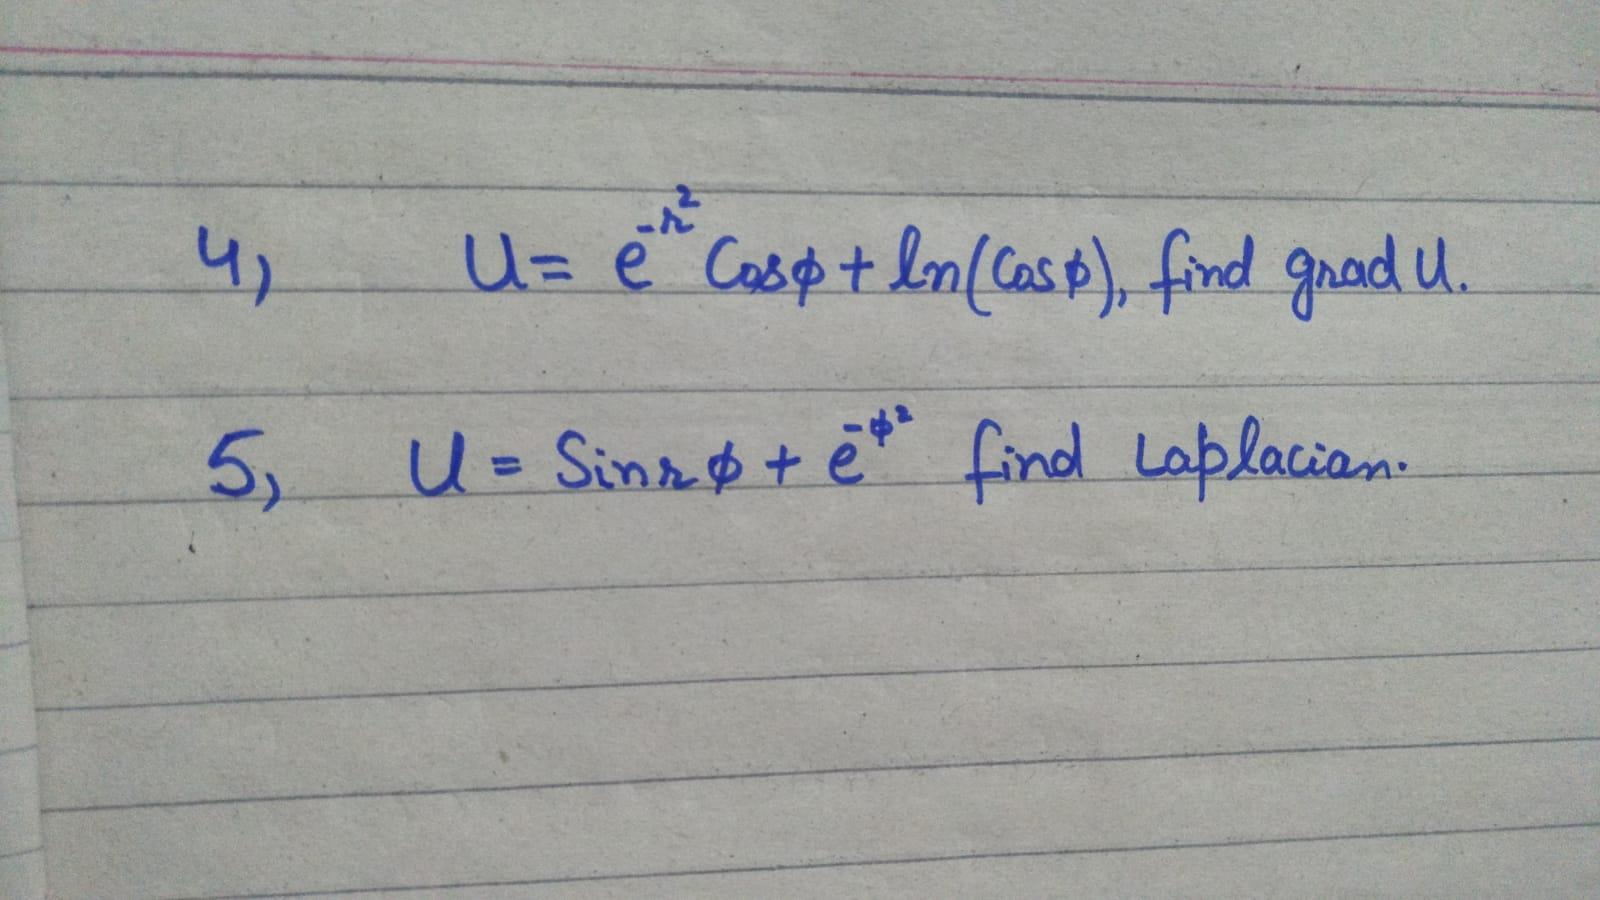 4, U = e^-r² Cosφ + ln(Cosφ), find grad U.
5, U = Sinrφ + e^-φ² find Laplacian.